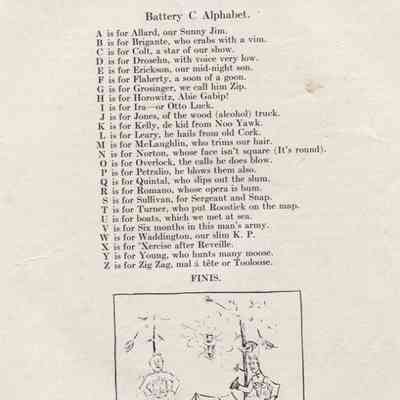 Battery C Alphabet.
A is for Allard, our Sunny Jim.
B is for Brigante, who crabs with a vim.
C is for Colt, a star of our show.
D is for Drosehn, with voice very low.
E is for Erickson, our mid-night son.
F is for Flaherty, a soon of a goon.
G is for Grosinger, we call him Zip.
H is for Horowitz, Abie Gabip!
I is for Ira—or Otto Luck.
J is for Jones, of the wood (alcohol) truck.
K is for Kelly, de kid from Noo Yawk.
L is for Leary, he hails from old Cork.
M is for McLaughlin, who trims our hair.
N is for Norton, whose face isn't square (It's round).
O is for Overlock, the calls he does blow.
P is for Petralio, he blows them also.
Q is for Quintal, who slips out the slum.
R is for Romano, whose opera is bum.
S is for Sullivan, for Sergeant and Snap.
T is for Turner, who put Roostick on the map.
U is for boats, which we met at sea.
V is for Six months in this man's army.
W is for Waddington, our slim K. P.
X is for 'Xercise after Reveille.
Y is for Young, who hunts many moose.
Z is for Zig Zag, mal á tête or Toolouse.
FINIS.